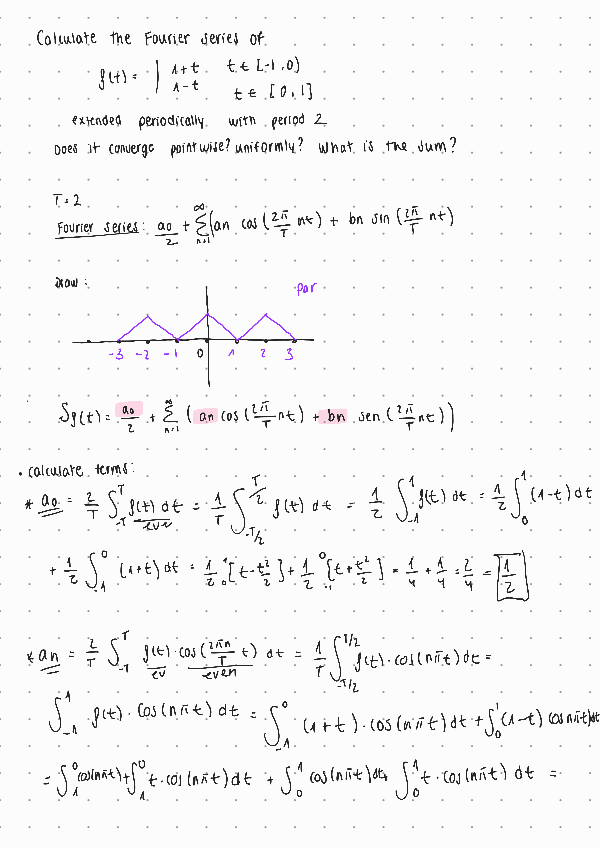 Calculate the Fourier series of
f(t) = | 1+t   t ∈ [-1,0)
1-t   t ∈ [0,1]
extended periodically with period 2
Does it converge pointwise? uniformly? What is the sum?
T=2
Fourier series: a0/2 + ∑_{n=1}^{∞} (an cos(2π/T nt) + bn sin(2π/T nt)
Draw:
par
-3 -2 -1 0 1 2 3
Sf(t) = a0/2 + ∑_{n=1}^{∞} (an cos(2π/T nt) + bn sen(2π/T nt))
• calculate terms:
* a0 = 2/T ∫_{-T}^{T} f(t) dt = 1/T ∫_{-T/2}^{T/2} f(t) dt = 1/2 ∫_{-1}^{1} f(t) dt = 1/2 ∫_{0}^{1} (1-t) dt
even
+ 1/2 ∫_{-1}^{0} (1+t) dt = 1/2 _{0}^{1}[t - t²/2] + 1/2 _{-1}^{0}[t + t²/2] = 1/4 + 1/4 = 2/4 = 1/2
* an = 2/T ∫_{-T}^{T} f(t) · cos(2πn/T t) dt = 1/T ∫_{-T/2}^{T/2} f(t) · cos(nπt) dt =
ev even
∫_{-1}^{1} f(t) · cos(nπt) dt = ∫_{-1}^{0} (1+t) · cos(nπt) dt + ∫_{0}^{1} (1-t) cos nπt) dt
= ∫_{1}^{0} cos(nπt) + ∫_{1}^{0} t · cos(nπt) dt + ∫_{0}^{1} cos(nπt) dt + ∫_{0}^{1} t · cos(nπt) dt =